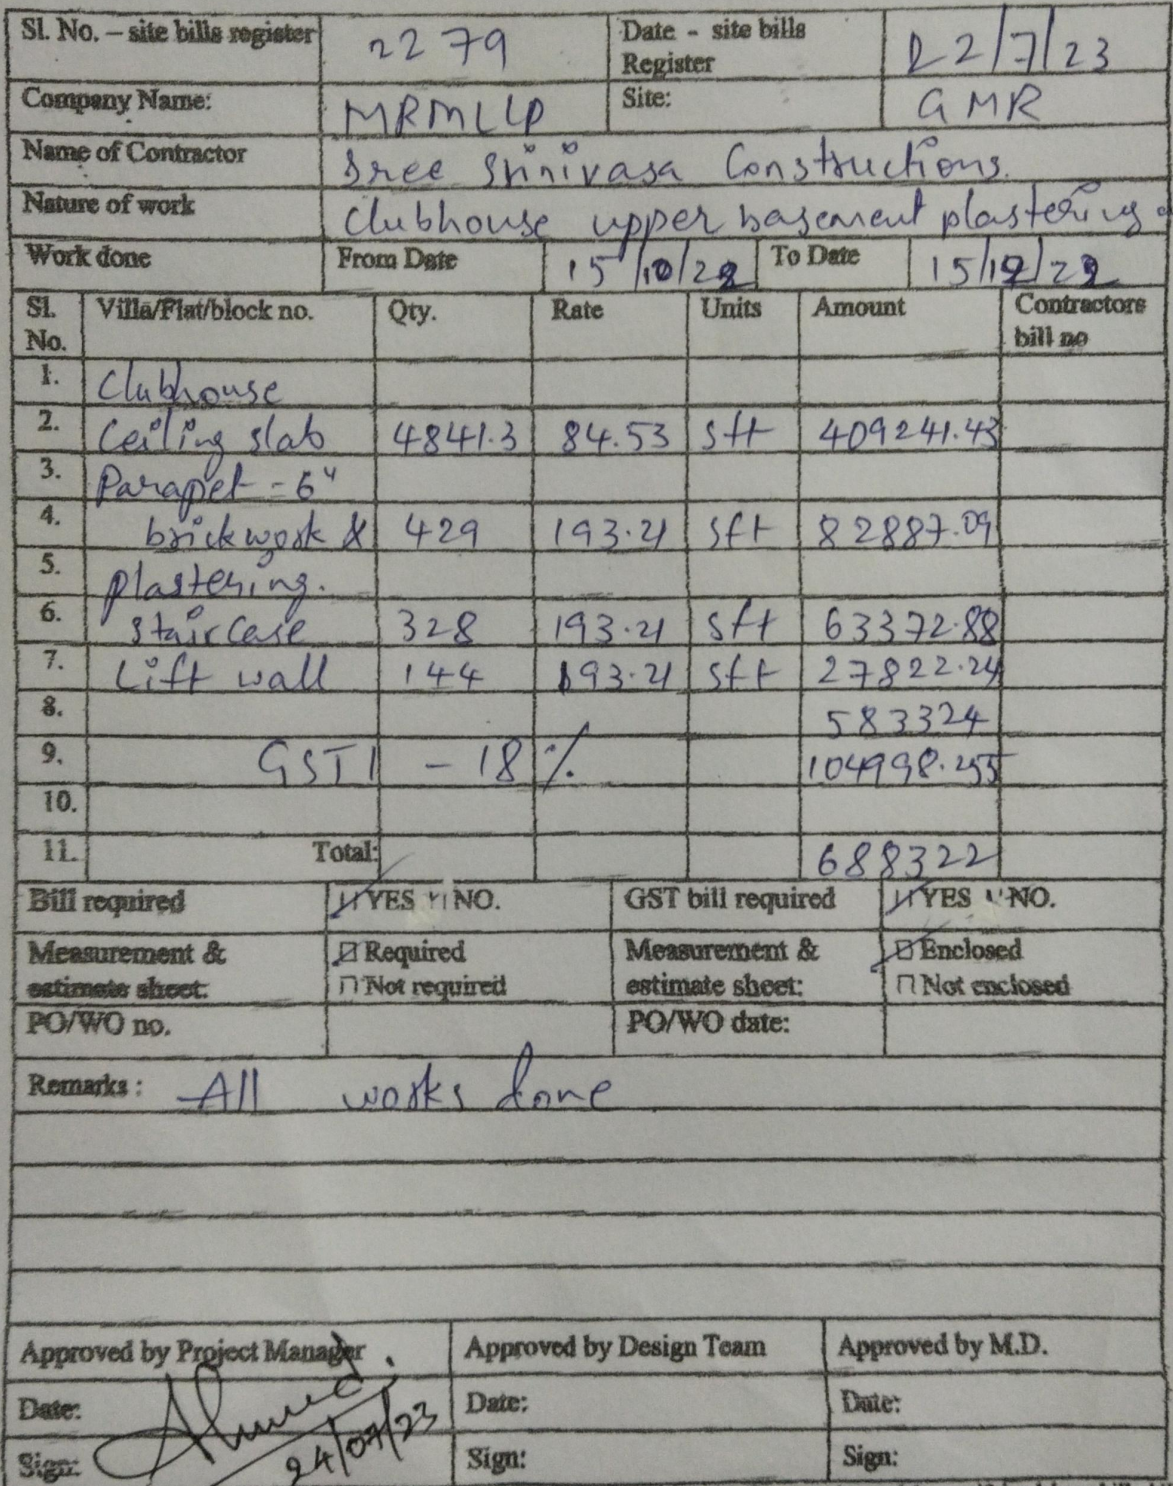 Sl. No. – site bills register 2279 Date - site bills Register 22/7/23
Company Name: MRMLLP Site: GMR
Name of Contractor Sree Srinivasa Constructions.
Nature of work Clubhouse upper basement plastering.
Work done From Date 15/10/22 To Date 15/12/22
Sl. No. Villa/Flat/block no. Qty. Rate Units Amount Contractors bill no
1. Clubhouse
2. Ceiling slab 4841.3 84.53 sft 409241.43
3. Parapet - 6"
4. brickwork & 429 193.21 sft 82887.09
5. plastering.
6. Staircase 328 193.21 sft 63372.88
7. Lift wall 144 193.21 sft 27822.24
8. 583324
9. GST - 18% 104998.255
10.
11. Total: 688322
Bill required YES NO. GST bill required YES NO.
Measurement & estimate sheet: Required Measurement & estimate sheet: Enclosed
Not required Not enclosed
PO/WO no. PO/WO date:
Remarks : All works done
Approved by Project Manager Approved by Design Team Approved by M.D.
Date: Date: Date:
Sign: 24/07/23 Sign: Sign: